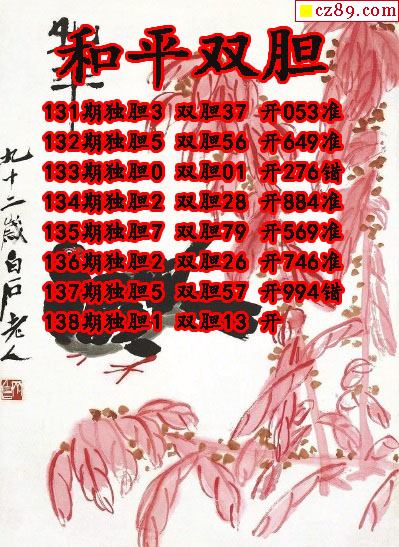 cz89.com
和平
和平双胆
131期独胆3 双胆37 开053准
132期独胆5 双胆56 开649准
133期独胆0 双胆01 开276错
134期独胆2 双胆28 开884准
135期独胆7 双胆79 开569准
136期独胆2 双胆26 开746准
137期独胆5 双胆57 开994错
138期独胆1 双胆13 开
九十二歲白石老人